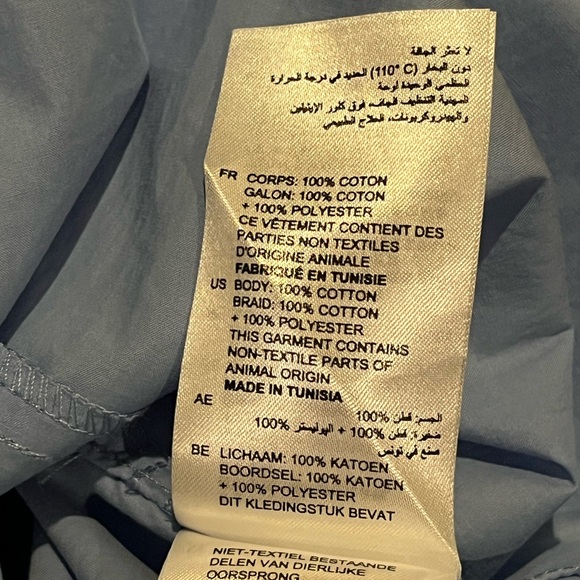 لا تعثر الجافة
دون البخار (110° C) الحديد في درجة الحرارة
العظمى الوحيدة لوحة
المهنية التنظيف الجاف، فوق كلور الإيثيلين
والهيدروكربونات، العلاج الطبيعي
FR CORPS: 100% COTON
GALON: 100% COTON
+ 100% POLYESTER
CE VÊTEMENT CONTIENT DES
PARTIES NON TEXTILES
D'ORIGINE ANIMALE
FABRIQUÉ EN TUNISIE
US BODY: 100% COTTON
BRAID: 100% COTTON
+ 100% POLYESTER
THIS GARMENT CONTAINS
NON-TEXTILE PARTS OF
ANIMAL ORIGIN
MADE IN TUNISIA
AE الجسم: قطن %100
ضفيرة: قطن %100 + البوليستر %100
صنع في تونس
BE LICHAAM: 100% KATOEN
BOORDSEL: 100% KATOEN
+ 100% POLYESTER
DIT KLEDINGSTUK BEVAT
NIET-TEXTIEL BESTAANDE
DELEN VAN DIERLIJKE
OORSPRONG